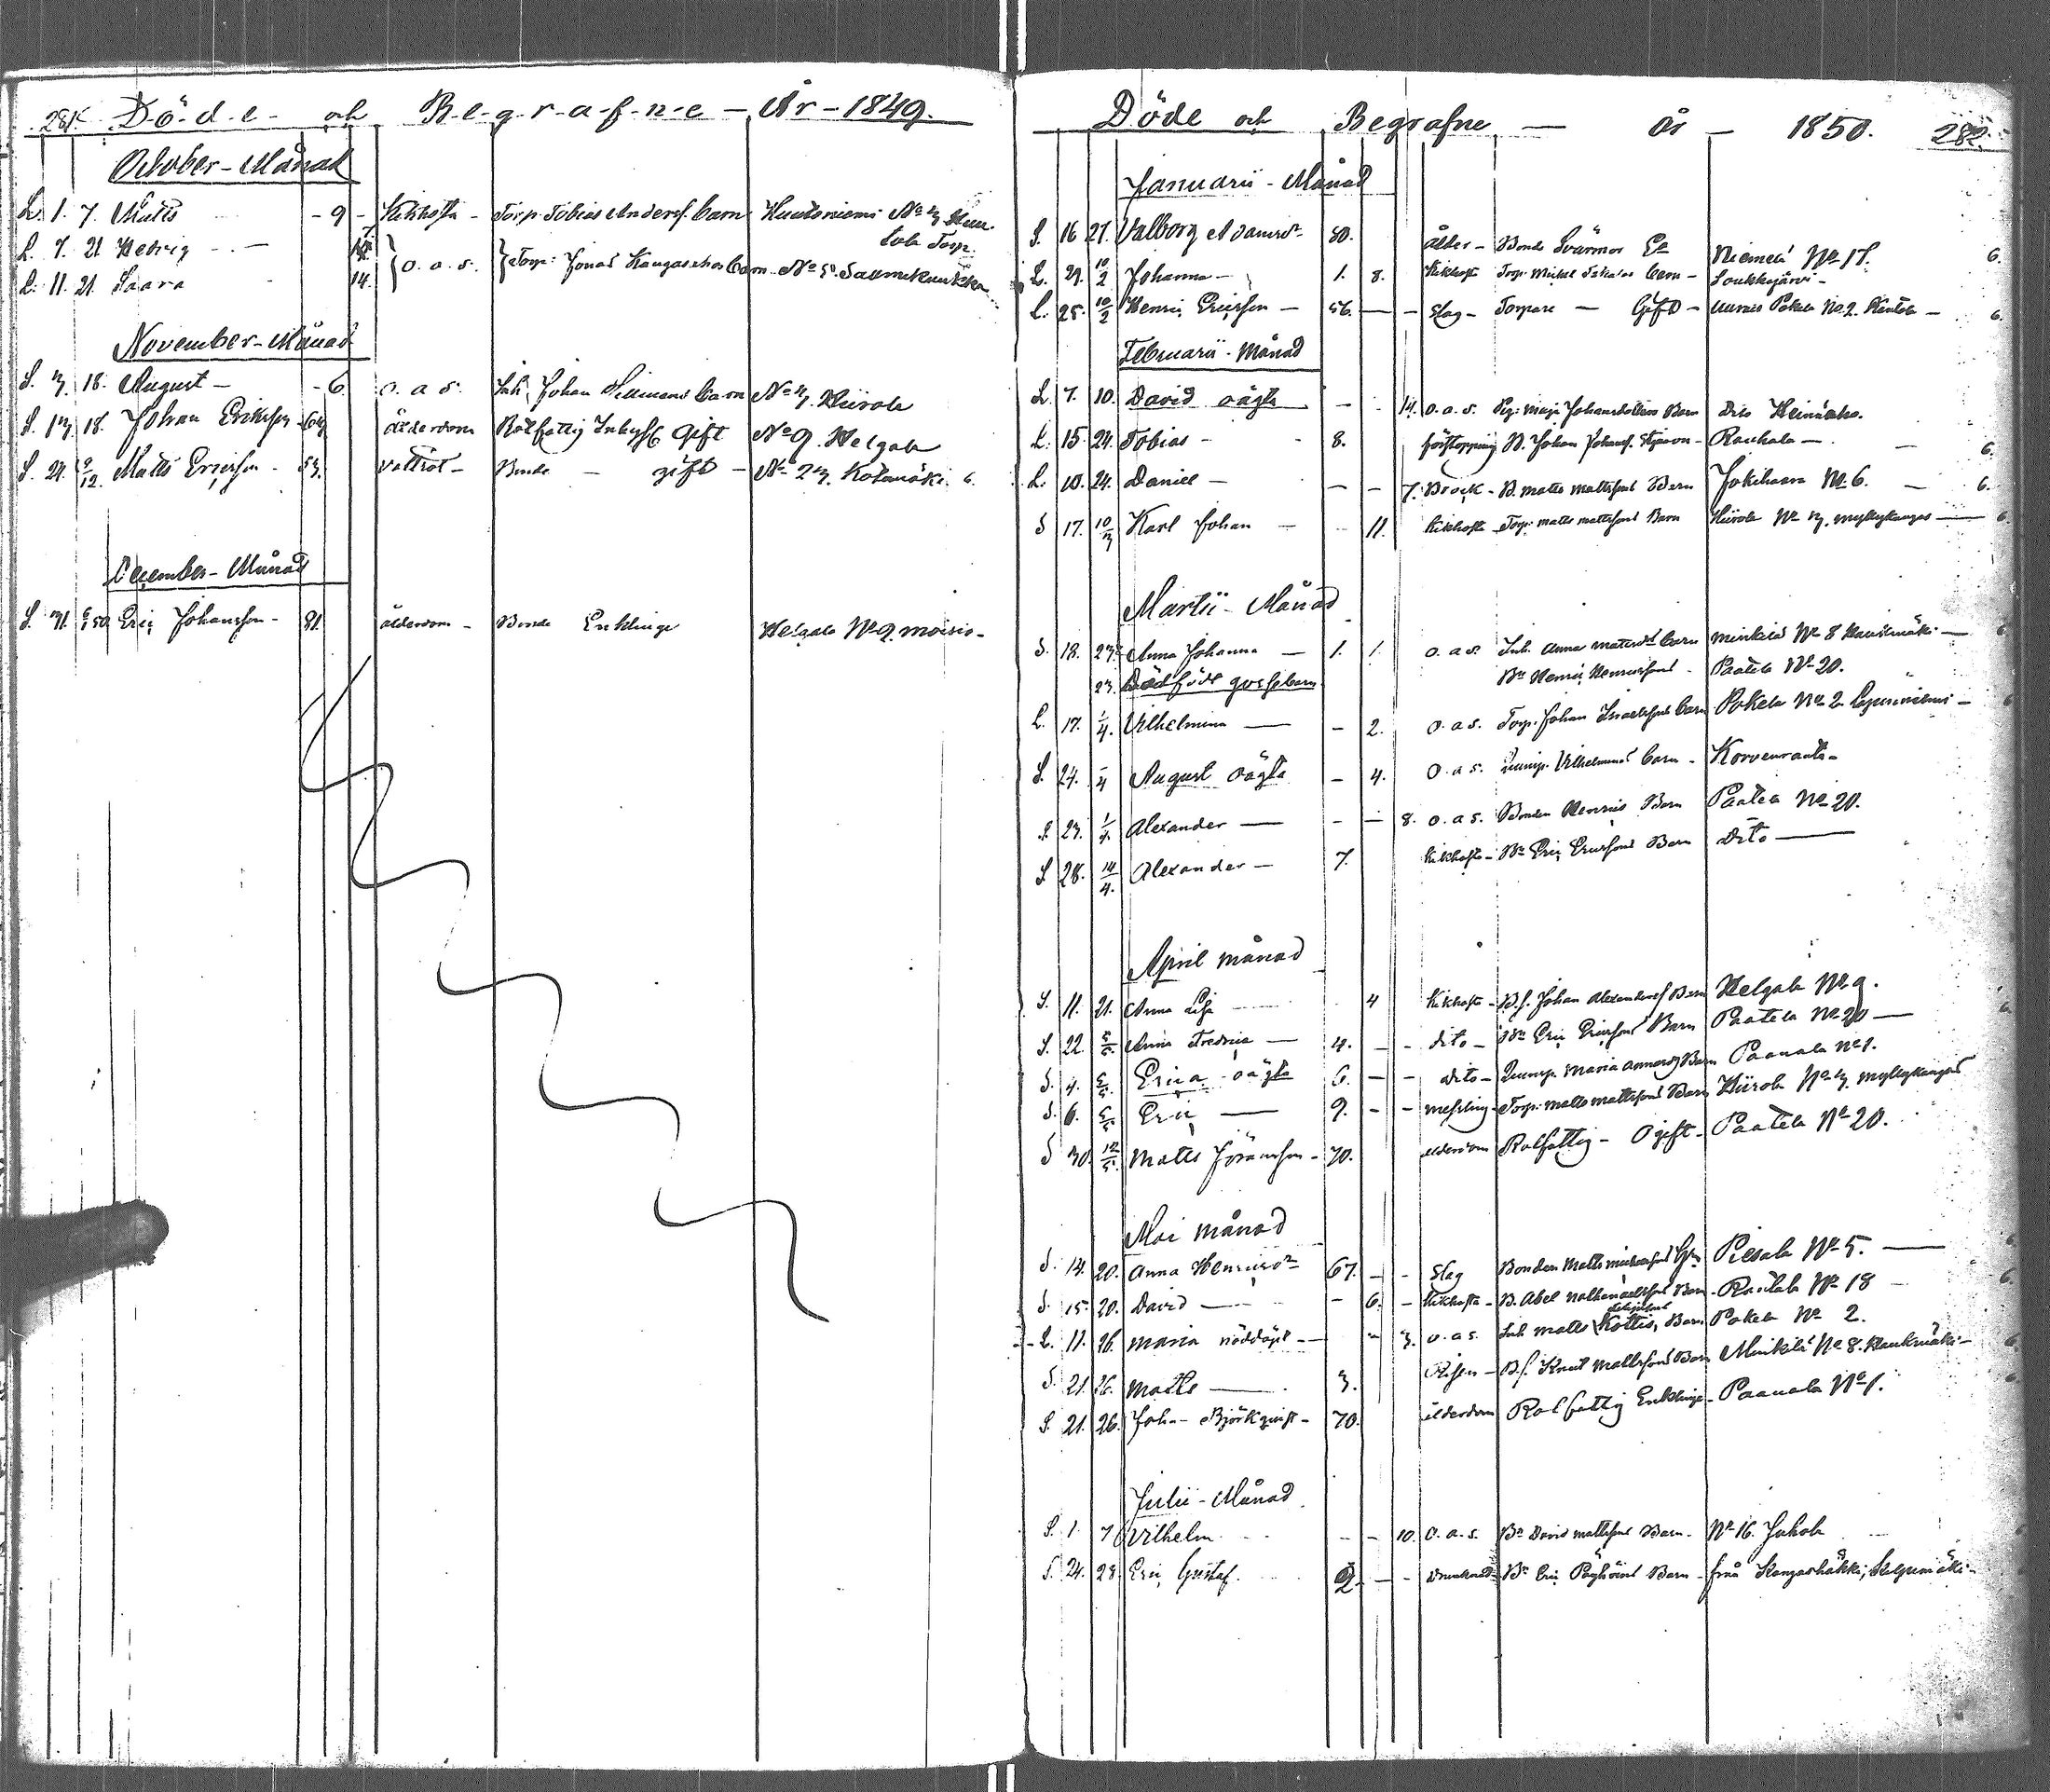 281. Döde och Begrafne - År - 1849.
October - Månad
L. 1. 7. Matts - 9 - Kikhosta - Torp. Tobias Anderss. barn
L. 7. 21 Hedvig - 14.
L. 11. 21. Saara - 14. o. a. s. Torp. Jonas barn
November - Månad
S. 3. 18. August - - 6. o. a. s. Inh. Johan barn No 3. Hiirola
S. 13. 18. Johan Eriksson ålderdom Rotfattig Inhys. Gift No 9. Helgala
S. 21. 9/12. Matts Ericsson - 53. vattsot - Bonde - gift - No 23. Kotamäki 6.
December - Månad
S. 31. Eric Johansson - 81. ålderdom - Bonde Enkling Helgala No 9. moisio -
Döde och Begrafne - år - 1850. 282.
Januarii - Månad
S. 16 27. Valborg Adamsdr 80. ålder - Bonde Svärmor Ea Niemelä No 17. 6.
L. 29. 10/2 Johanna - 1. 8. Kikhosta Torp. Mickel barn - Loukkujärvi -
L. 25. 10/2 Henric Ericsson - 56. - - Slag - Torpare - Gift - Pokela No 2. 6.
Februarii - Månad
L. 7. 10. David oägta - - 14. o. a. s. Pig. Maja Johansdotters Barn Dito
L. 15. 24. Tobias - - 8. förstoppning B. Johan Johanss. Rauhala - 6.
L. 10. 24. Daniel - - - 7. Bråck - B. Matts Mattssons Barn No 6. - 6.
S 17. 10/3 Karl Johan - - 11. Kikhosta Torp. Matts Mattssons Barn Hiirola No 3. Myllykangas - 6.
Martii - Månad
S. 18. 23. Anna Johanna - 1. 1. o. a. s. Inh. Anna Matsdrs barn Minkilä No 8 Haukmäki - 6
23. Dödfödt gossebarn Bn Henric Henricssons - Paatela No 20.
L. 17. 1/4. Vilhelmina - - 2. o. a. s. Torp. Johan Israelssons barn Pokela No 2.
S. 24. 1/4 August oägta - 4. o. a. s. Vilhelminas barn - Korvenranta -
S. 23. 1/4. Alexander - - - 8. o. a. s. Bonden Henrics Barn Paatela No 20.
S 28. 14/4. Alexander - 7. Kikhosta - Bn Eric Ericssons Barn dito -
April månad
S. 11. 21. Anna Lisa 4 Kikhosta - B. s. Johan Alexanderss Barn Helgala No 9.
S. 22. 5/5. Anna Fredrica - 4. - - dito - Bn Eric Ericssons Barn Paatela No 20 -
S. 4. 5/5. Erica oägta 6. - - dito - Maria Barn Paanala No 1.
S. 6. 5/5. Eric - 9. - - messling - Torp. Matts Mattssons Barn Hiirola No 3. Myllykangas
S 30. 12/5. Matts Göransson - 70. ålderdom Rotfattig - Ogift - Paatela No 20.
Mai månad
S. 14. 20. Anna Henricsdr 67. - - Slag Bonden Matts Piesala No 5. -
S. 15. 20. David - - 6. - Kikhosta - B. Abel Nathanaelssons Barn - No 18 - 6.
L. 11. 26. Maria nöddöpt - - 3. o. a. s. Inh. Matts Kottis Barn Pokela No 2.
S. 21. 26. Matts - 3. B. s. Knut Mattssons Barn Minkilä No 8. Haukmäki -
S. 21. 26. Joh. Björkqvist - 70. ålderdom Rotfattig Enkling - Paanala No 1.
Julii - Månad
S. 1. 7 Vilhelm - - 10. o. a. s. Bn David Mattssons Barn - No 16. Jukola
S. 24. 28. Eric Gustaf. 2. - - drunknad - Bn Eric Barn - från Kangashäkki,